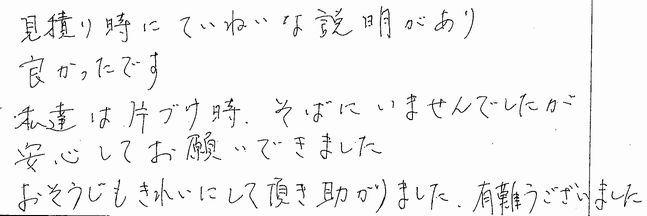 見積り時にていねいな説明があり
良かったです
私達は片づけ時、そばにいませんでしたが
安心してお願いできました
おそうじもきれいにして頂き助がりました、有難うございました